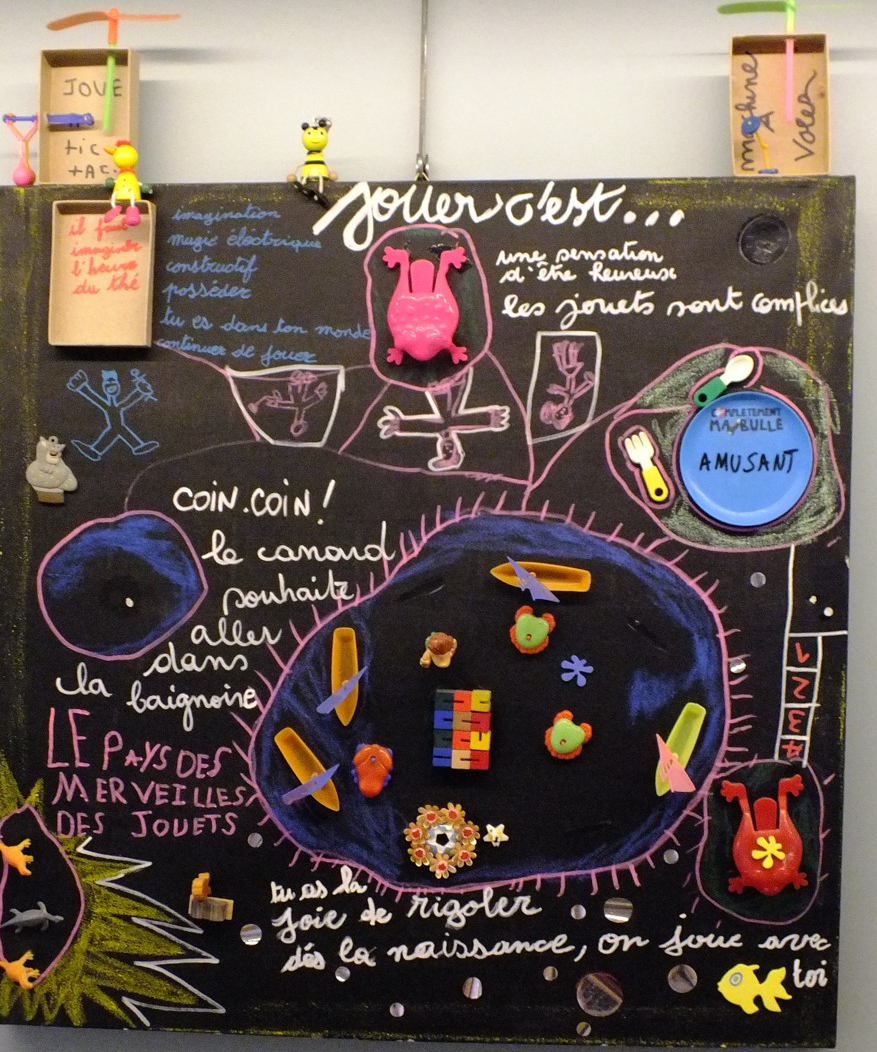 JOUE
tic
tac
machine
A
voler
jouer c'est...
il faut
imaginer
l'heure
du thé
imagination
magic éléctrique
constructif
posséder
tu es dans ton monde
continuer de jouer
une sensation
d'être heureuse
les jouets sont complices
COMPLETEMENT
MABULLE
AMUSANT
COIN.COIN!
le canard
souhaite
aller
dans
la baignoire
1
2
3
4
LE PAYS DES
MERVEILLES
DES JOUETS
tu as la
joie de rigoler
dés la naissance, on joue avec
toi